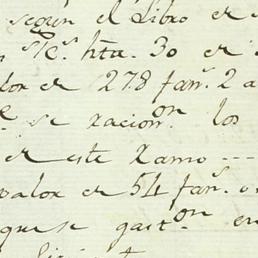 segun el Libro e
hta. 30 e
alor e 278 fan.s 2 a
e se racion.on los
e este Ramo ---
valor e 54 fan.s
que se gast.on en